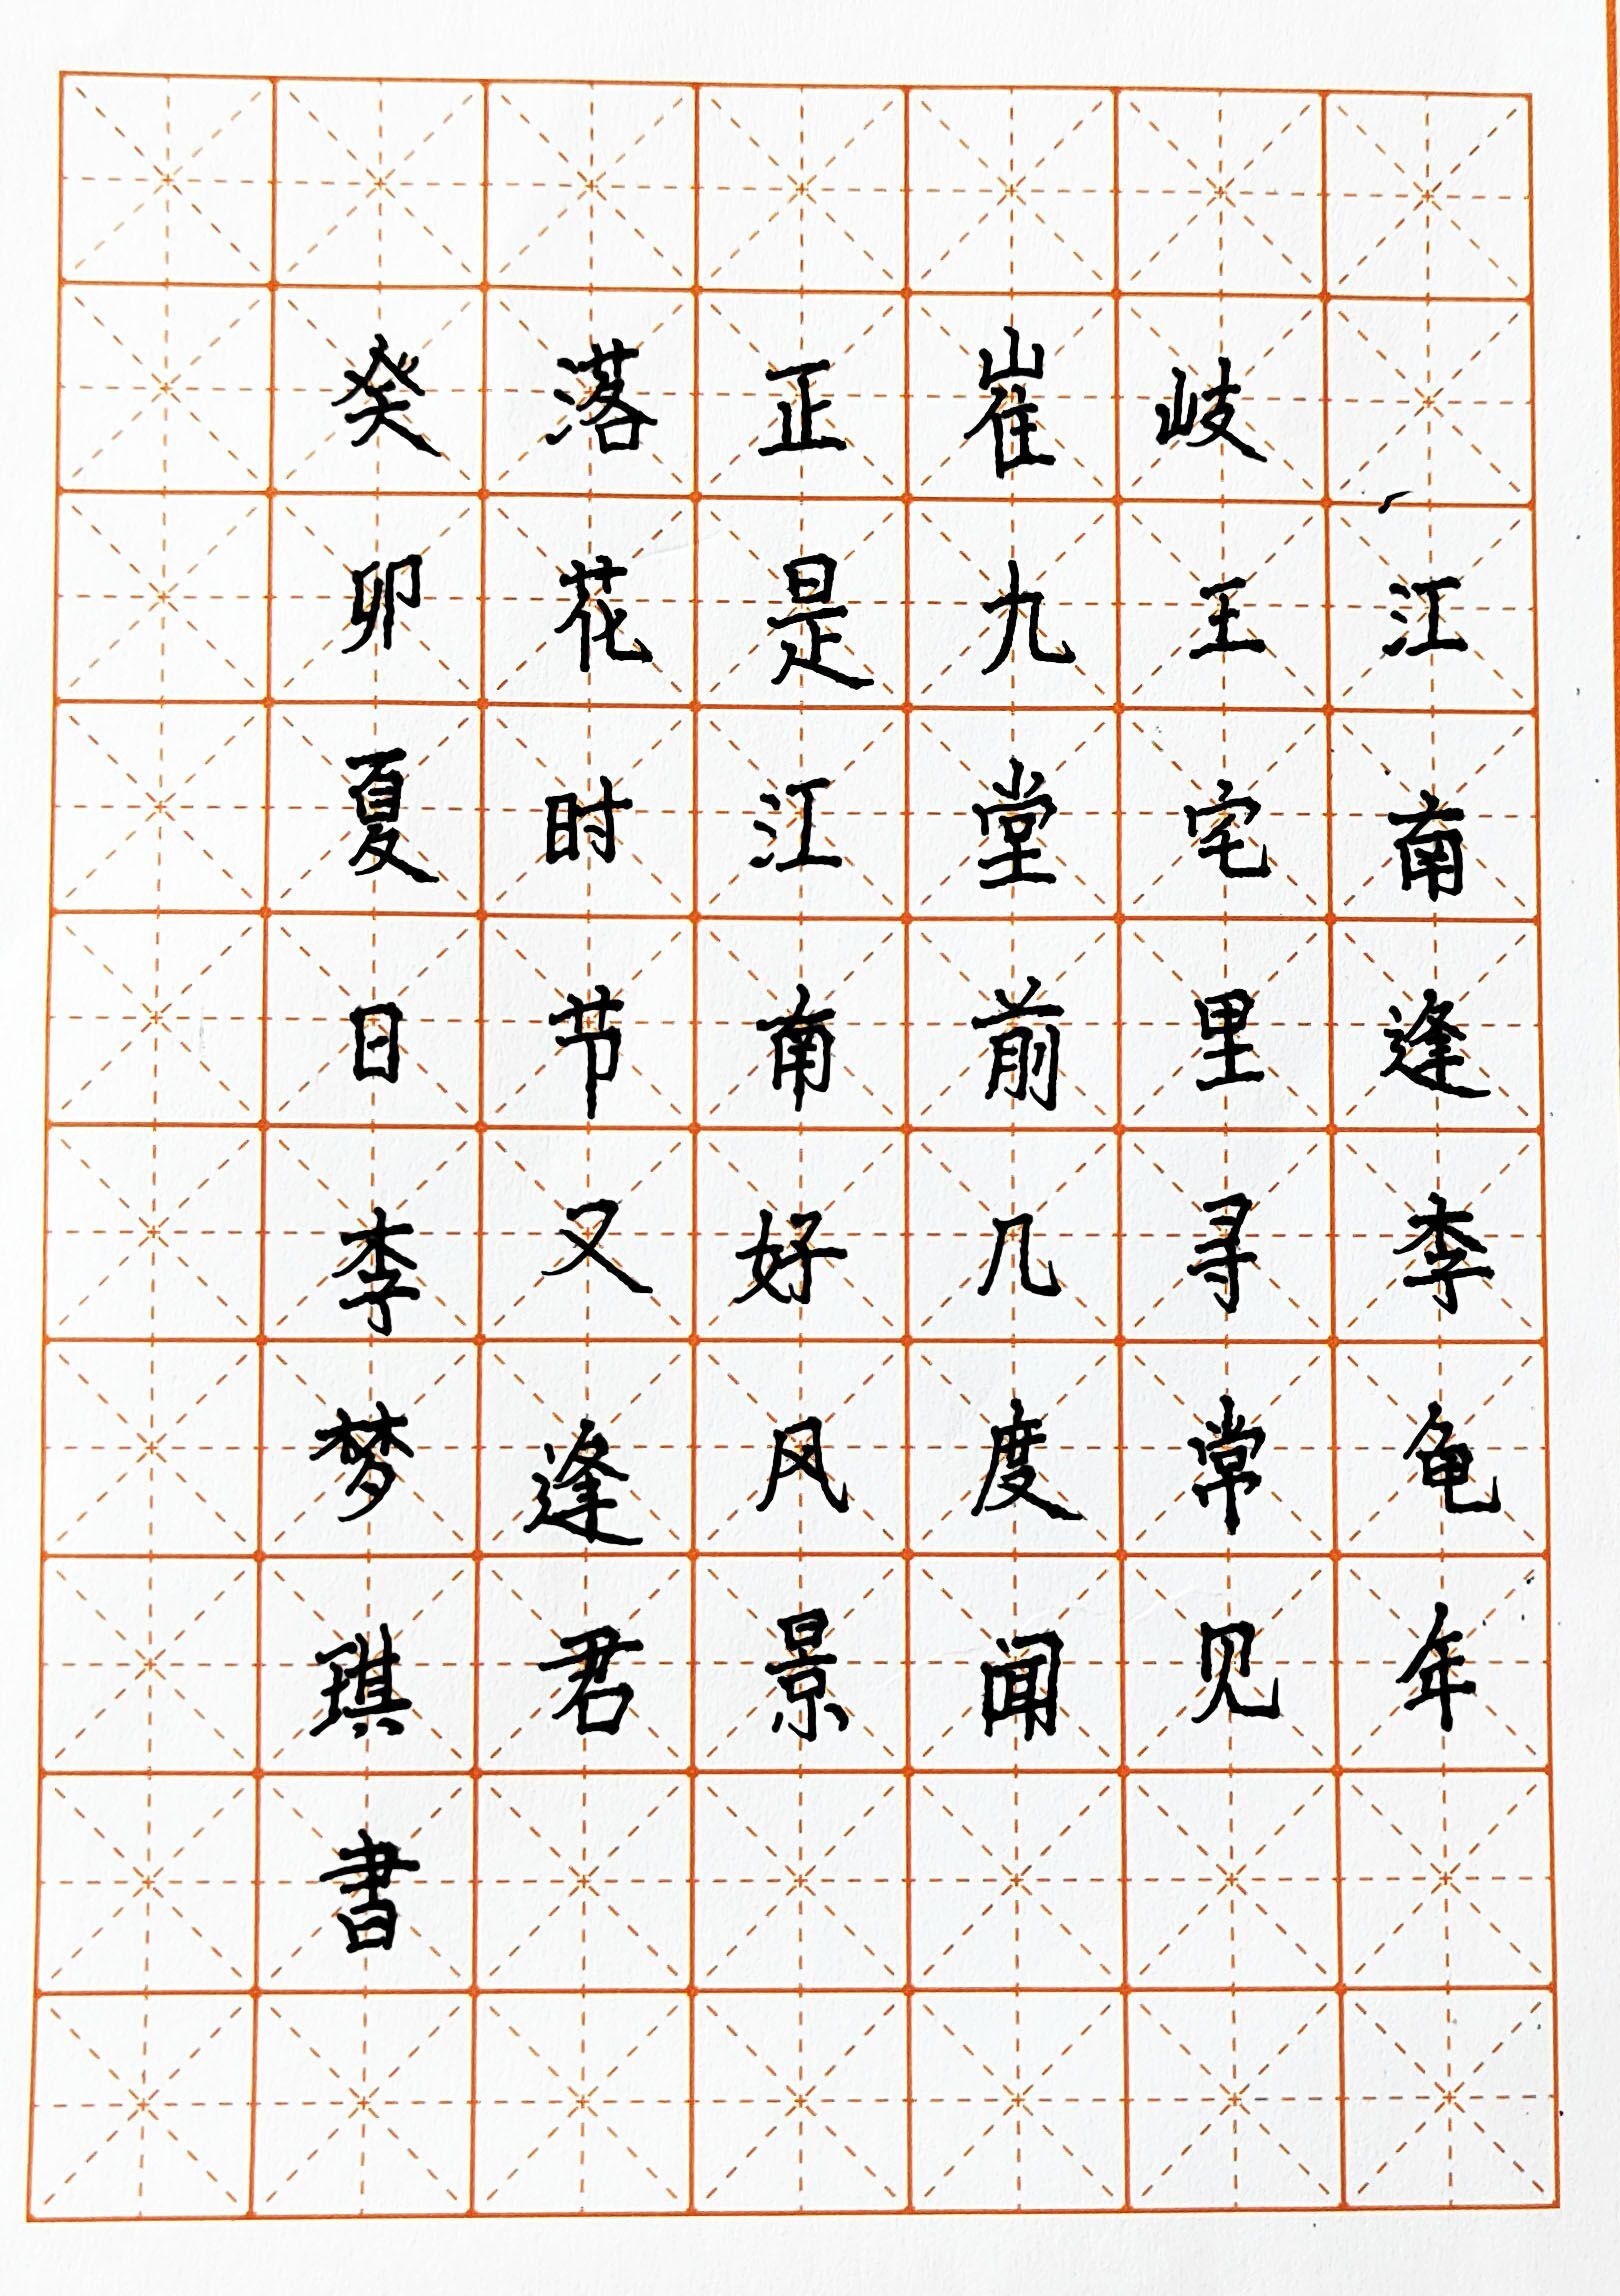 江南逢李龟年
岐王宅里寻常见
崔九堂前几度闻
正是江南好风景
落花时节又逢君
癸卯夏日李梦琪書